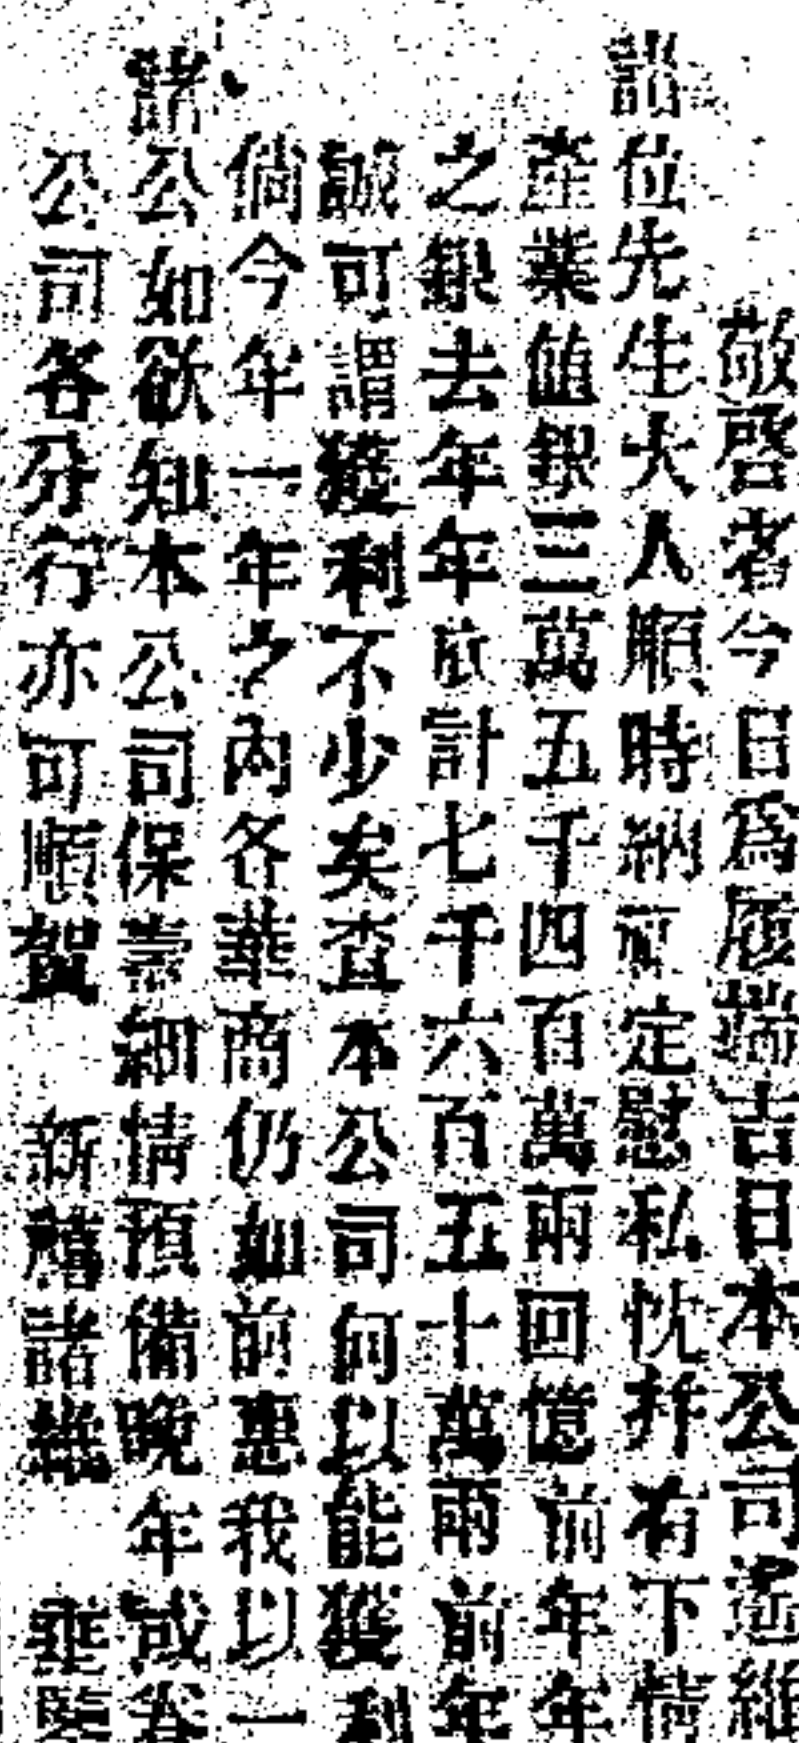 敬啓者今日為履端吉日本公司遥維
諸位先生大人順時納祜定慰私忱幷有下情
產業值銀三萬五千四百萬兩回憶前年年
之銀去年年底計七千六百五十萬兩前年
誠可謂獲利不少矣查本公司何以能獲利
倘今年一年之內各華商仍如前惠我以一
諸公如欲知本公司保壽細情預備晚年或眷
公司各分行亦可順賀 新禧諸維 垂鑒